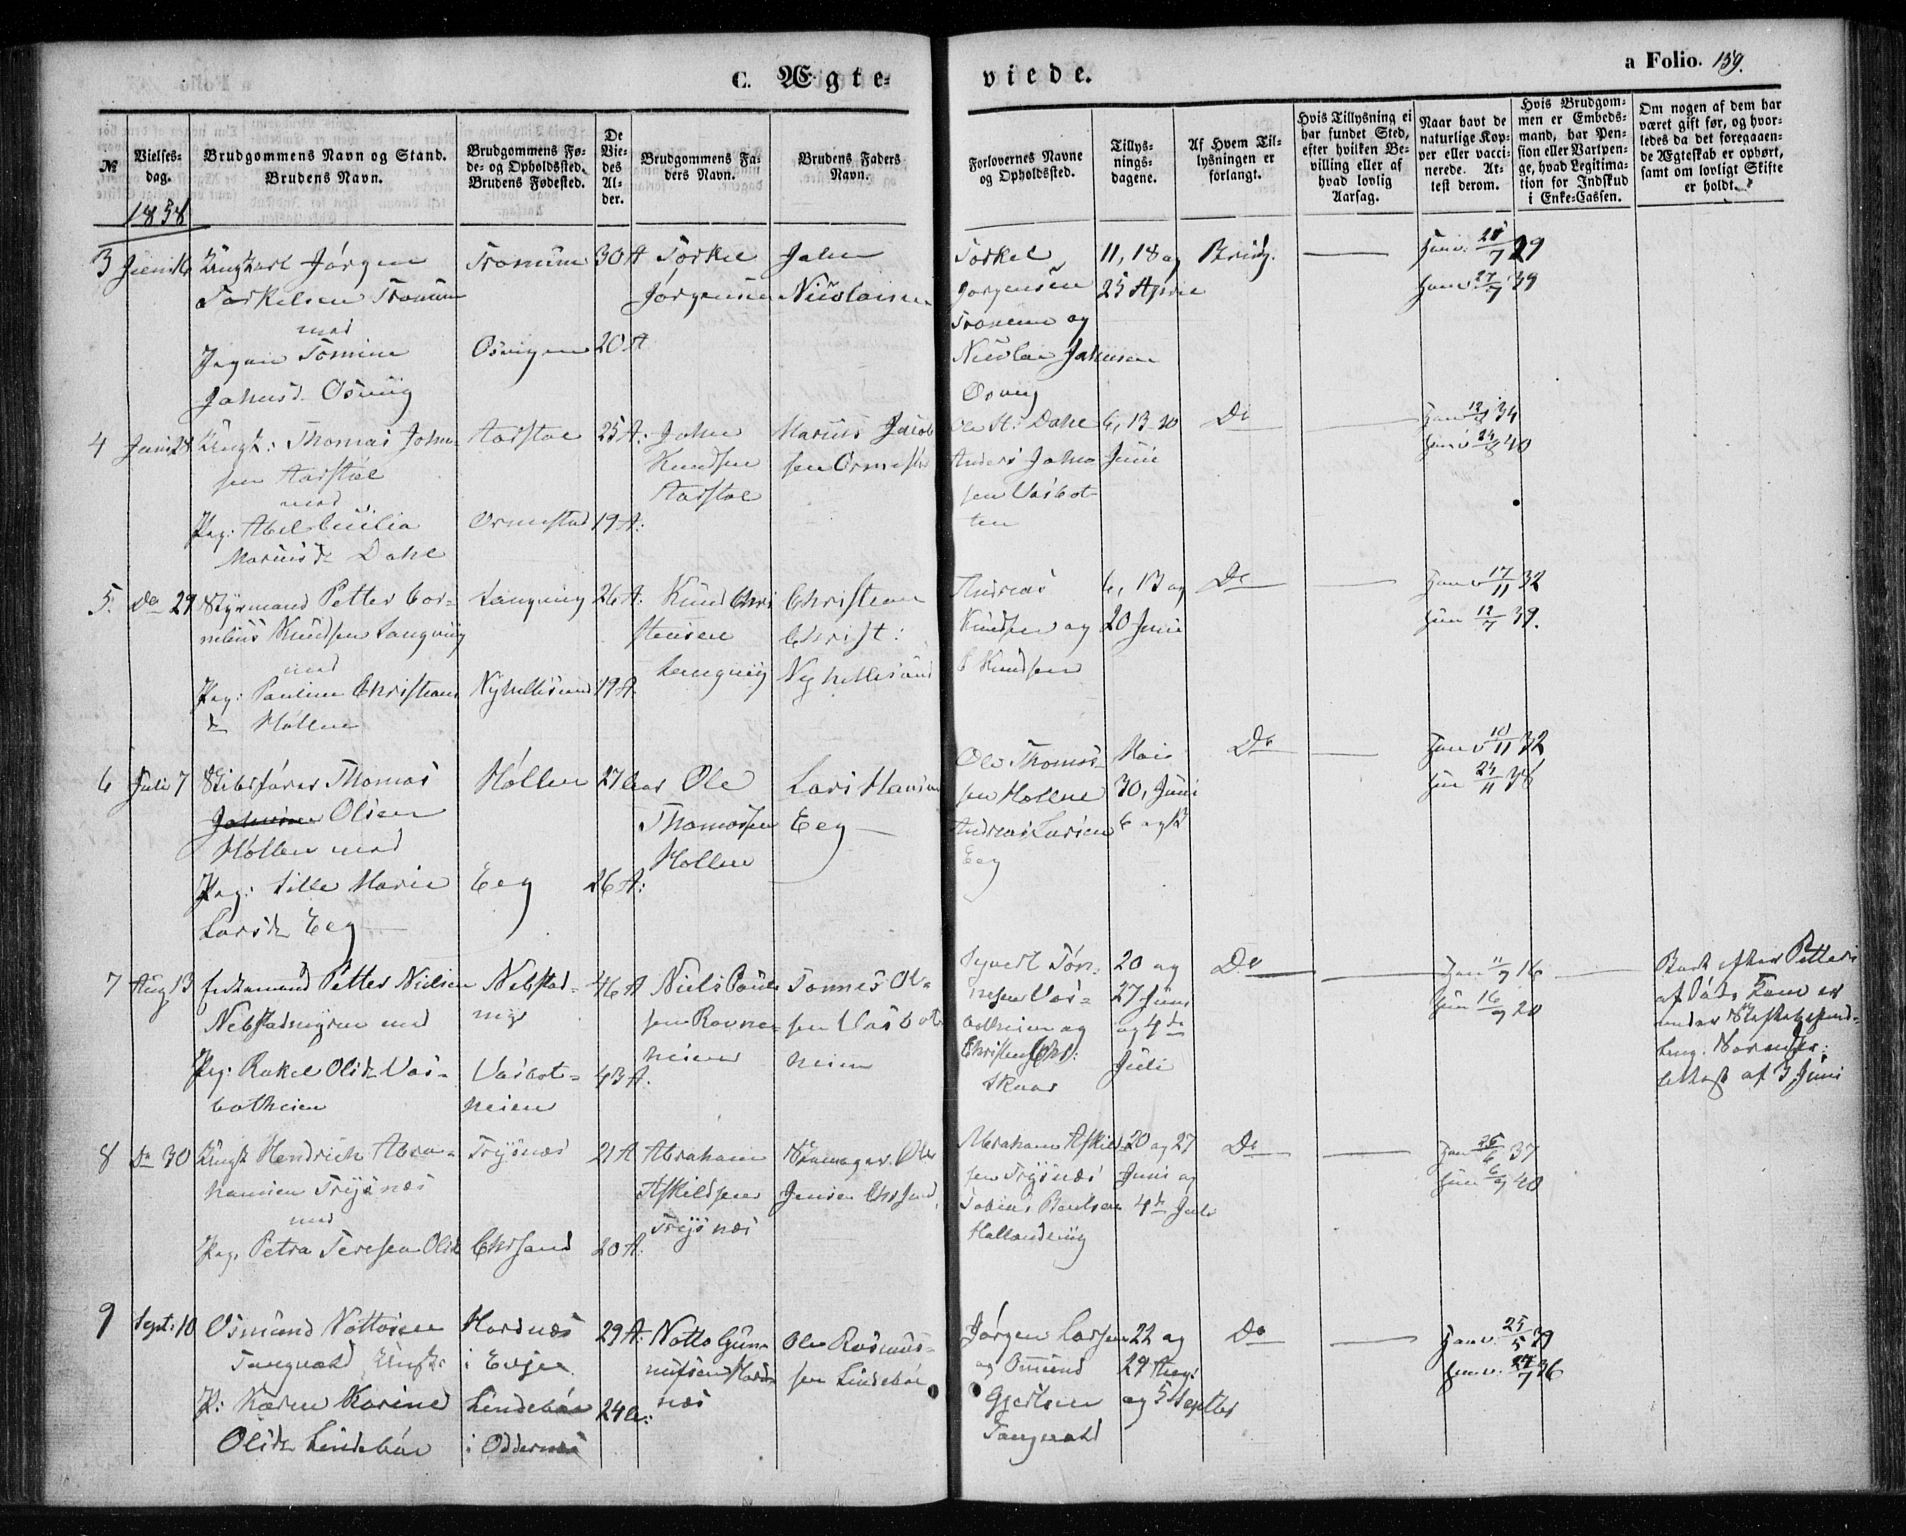 C. Ægteviede.
a Folio. 159.
№
Vielses-
dag.
Brudgommens Navn og Stand.
Brudens Navn.
Brudgommens Fø-
de- og Opholdssted.
Brudens Fødested.
De
Vie-
des
Al-
der.
Brudgommens Fa-
ders Navn.
Brudens Faders
Navn.
Forlovernes Navne
og Opholdssted.
Tillys-
nings-
dagene.
Af Hvem Til-
lysningen er
forlangt.
Hvis Tillysning ei
har fundet Sted,
efter hvilken Be-
villing eller af
hvad lovlig
Aarsag.
Naar havt de
naturlige Kop-
per eller vacci-
nerede. At-
test derom.
Hvis Brudgom-
men er Embeds-
mand, har Pen-
sion eller Vartpen-
ge, hvad Legitima-
tion for Indskud
i Enke-Cassen.
Om nogen af dem har
været gift før, og hvor-
ledes da det foregaaen-
de Ægteskab er ophørt,
samt om lovligt Skifte
er holdt.
1858
3 Ungkarl Jørgen
Torkelsen Tronum
med
Tomine
Johnsd. Osvig
Tronum 30 A
20 A
Torkel
Jørgensen
John
Nicolaisen
Torkel
Jørgensen
og
Nicolai Johnsen
Osvig
11, 18 og
25 April
Brudg.
4 Juni 28 Ungk: Thomas John-
sen Aarstøl
med
Pig: Abel Cecilia
Mariusd. Dahl
Aarstøl 25 A:
Ormestad 19 A:
John
Knudsen
Aarstøl
Marius Jacob
sen Ormestad
Ole H. Dahl
Anders John-
sen Vasbot-
ten
6, 13 20
Juni
Do
5. Do 29 Styrmand Petter Cor-
nelius Knudsen Langvig
med
Pig: Pauline Christians
d. Høllen
Langvig 26 A.
Nyhellesund 19 A.
Knud Chri
stensen
Langvig
Christian
Christ:
Nyhellesund
Andreas
Knudsen og
C Knudsen
6, 13 og
20 Juni
Do
Han v 17/11 32
Hun 12/7 39.
6 Juli 7 Skibsfører Thomas
Olsen
Høllen med
Pig: Sille Marie
Larsd. Eeg
Høllen 27 Aar
Eeg 26 A:
Ole
Thomassen
Høllen
Lars Hansen
Eeg
Ole Thomas-
sen Høllen
Andreas Larsen
Eeg
Mai
30, Juni
6 og 13
Do
7 Aug 13 Enkemand Petter Nielsen
Nebstadmyren med
Pig: Rakel Olsd. Vas-
botheien
Nebstad-
myr
Vasbot-
heien
46 A
43 A.
Niels Pouls
sen Ravne-
heien
Tønnes Ol-
sen Vasbot
heien
Syvert Tøn-
nesen Vas-
botheien og
Christen Chr:
Skaar
20 og
27 Juni
og 4de
Juli
Do
Han 11/7 16
Hun 16/9 20
af 3 Juni
8 Do 30 Ungk Hendrich Abra-
hamsen Trysnæs
med
Pig. Petra Teresea Olsd
Trysnæs 21 A
Chrsand 20 A.
Abraham
Askildsen
Trysnæs
Skomager Ole
Jensen Chrsand
Abraham Askild-
sen Trysnæs
Tobias Bentsen
Hallandsvig
20 og 27
Juni og
4de Juli
Do
9 Sept: 10 Osmund Nottosen
Tangvald Ungk:
P: Karen Karine
Olsd. Lindebøe
Hordnæs
i Evje
Lindebøe
i Oddernæs
29 A.
24 A:
Notto Gun-
nufsen Hord
næs
Ole Rasmus-
sen Lindebøe
Jørgen Larsen
og Omund
Gjertsen
Tangvald
22 og
29 Aug:
og 5 Septbr
Do
Han v. 25/5 39